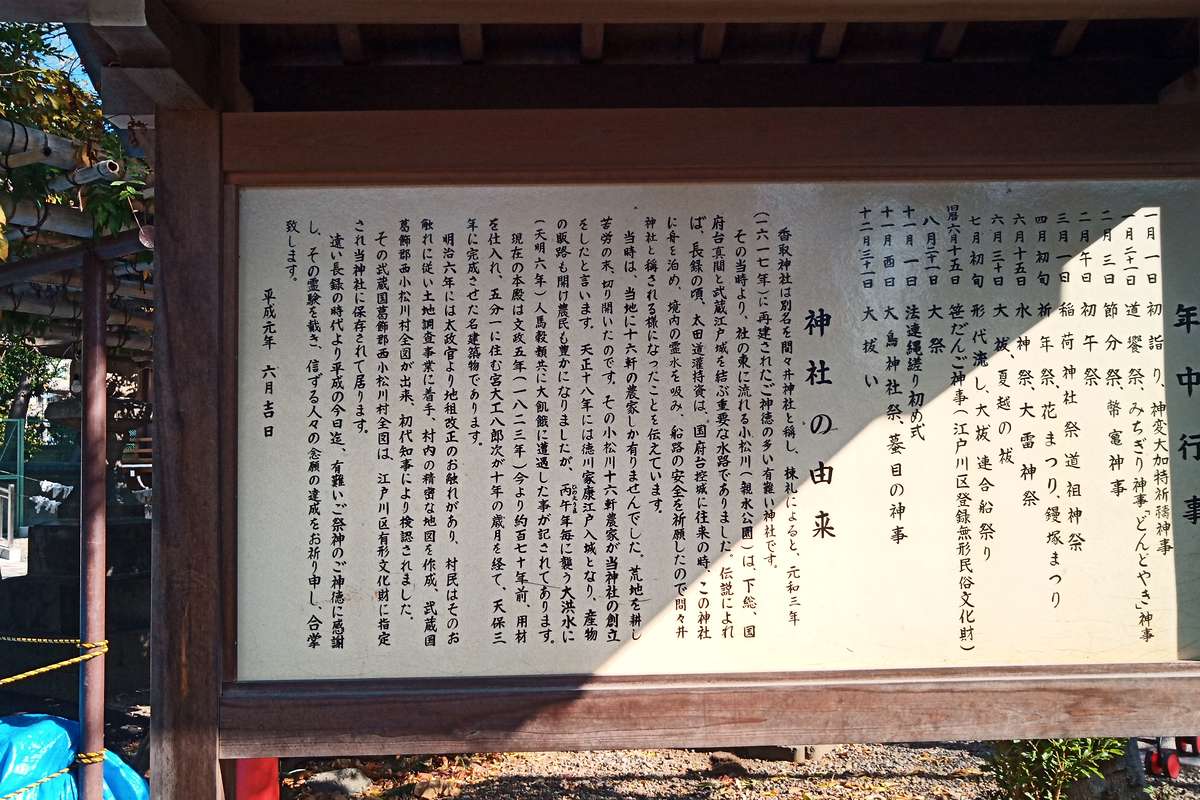 年中行事
一月一日 初詣り、神変大加特祈禱神事
一月二十一日 道饗祭、みちぎり神事「どんどやき」神事
二月三日 節分祭、幣竈神事
二月午日 初午祭
三月一日 稲荷神社祭 道祖神祭
四月初旬 祈年祭、花まつり、鏝塚まつり
六月十五日 水神祭、大雷神祭
六月三十日 大祓、夏越の祓
七月初旬 形代流し、大祓 連合船祭り
旧暦六月十五日 笹だんご神事(江戸川区登録無形民俗文化財)
八月二十一日 大祭
十一月一日 法連縄縒り初め式
十一月酉日 大鳥神社祭、蟇目の神事
十二月三十一日 大祓い
神社の由来
香取神社は別名を間々井神社と称し、棟礼によると、元和三年
(一六一七年)に再建されたご神徳の多い有難い神社です。
その当時より、社の東に流れる小松川(親水公園)は、下総、国
府台真間と武蔵江戸城を結ぶ重要な水路でありました。伝説によれ
ば、長録の頃、太田道灌持資は、国府台控城に往来の時、この神社
に舟を泊め、境内の霊水を汲み、船路の安全を祈願したので間々井
神社と称される様になったことを伝えています。
当時は、当地に十六軒の農家しか有りませんでした。荒地を耕し
苦労の末、切り開いたのです。その小松川十六軒農家が当神社の創立
をしたと言います。天正十八年には徳川家康江戸入城となり、産物
の販路も開け農民も豊かになりましたが、丙午年毎に襲う大洪水に
(天明六年)人馬穀類共に大飢饉に遭遇した事が記されてあります。
現在の本殿は文政五年(一八二三年)今より約百七十年前、用材
を仕入れ、五分一に住む宮大工八郎次が十年の歳月を経て、天保三
年に完成させた名建築物であります。
明治六年には太政官より地租改正のお触れがあり、村民はそのお
触れに従い土地調査事業に着手、村内の精密な地図を作成、武蔵国
葛飾郡西小松川村全図が出来、初代知事により検認されました。
その武蔵国葛飾郡西小松川村全図は、江戸川区有形文化財に指定
され当神社に保存されて居ります。
遠い長録の時代より平成の今日迄、有難いご祭神のご神徳に感謝
し、その霊験を戴き、信ずる人々の念願の達成をお祈り申し、合掌
致します。
平成元年 六月吉日